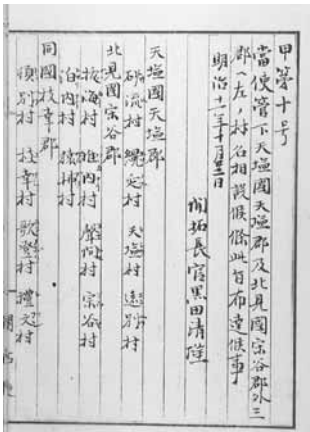 甲第十号
當使管下天塩國天塩郡及北見國宗谷郡外三
郡ヘ左ノ村名相設候條此旨布達候事
明治十一年十月廿二日
開拓長官黒田清隆
天塩國天塩郡
沙流村 天塩村 遠別村
北見國宗谷郡
抜海村 聲問村 宗谷村
泊内村 猿払村
同國枝幸郡
頓別村 枝幸村 歌登村 禮文村